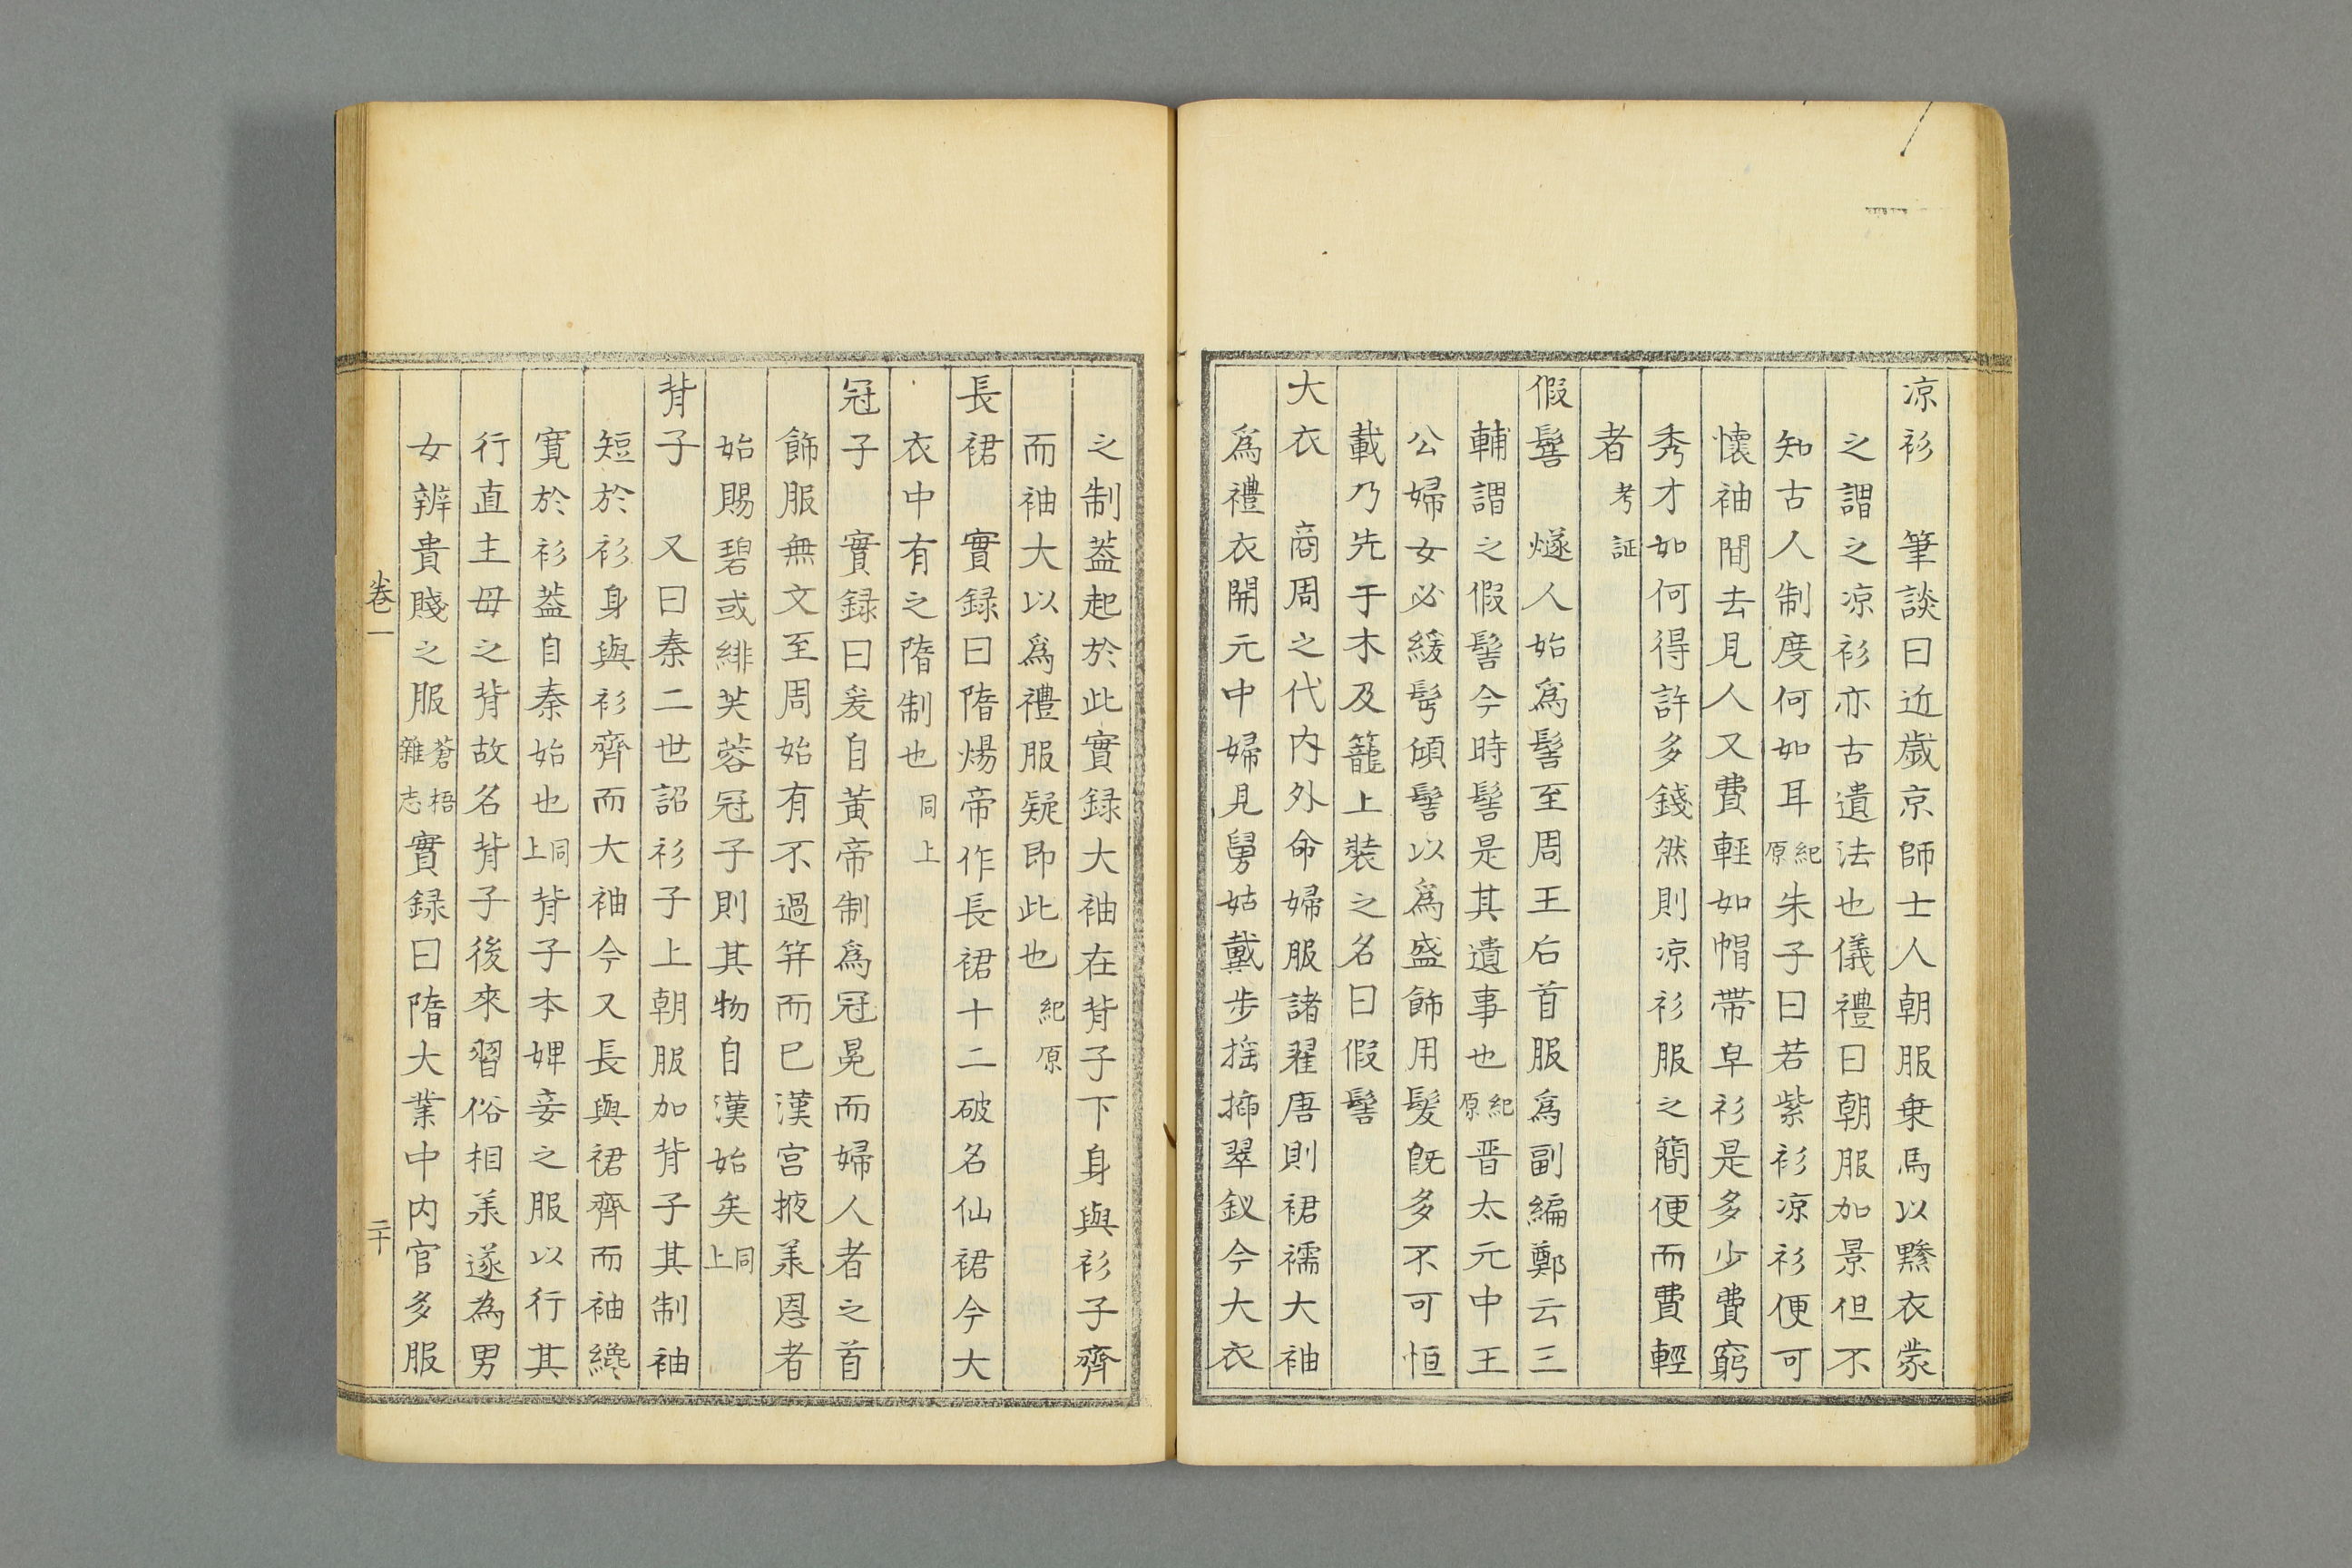 凉衫 筆談曰近歲京師士人朝服乗馬以黲衣蒙
之謂之凉衫亦古遺法也儀禮曰朝服加景但不
知古人制度何如耳紀原朱子曰若紫衫凉衫便可
懐袖間去見人又費輕如帽帶皁衫是多少費窮
秀才如何得許多錢然則凉衫服之簡便而費輕
者考証
假髻 燧人始爲髻至周王后首服爲副編鄭云三
輔謂之假髻今時髻是其遺事也紀原晋太元中王
公婦女必緩髩傾髻以爲盛飾用髮旣多不可恒
載乃先于木及籠上裝之名曰假髻
大衣 商周之代內外命婦服諸翟唐則裙襦大袖
爲禮衣開元中婦見舅姑戴步摇揷翠釵今大衣
之制蓋起於此實録大袖在背子下身與衫子齊
而袖大以爲禮服疑即此也紀原
長裙 實録曰隋煬帝作長裙十二破名仙裙今大
衣中有之隋制也同上
冠子 實録曰爰自黃帝制爲冠冕而婦人者之首
飾服無文至周始有不過筓而已漢宮掖羕恩者
始賜碧或緋芙蓉冠子則其物自漢始矣同上
背子 又曰秦二世詔衫子上朝服加背子其制袖
短於衫身與衫齊而大袖今又長與裙齊而袖纔
寛於衫蓋自秦始也同上背子本婢妾之服以行其
行直主母之背故名背子後來習俗相羕遂為男
女辨貴賤之服蒼梧雜志實録曰隋大業中内官多服
卷一
二十